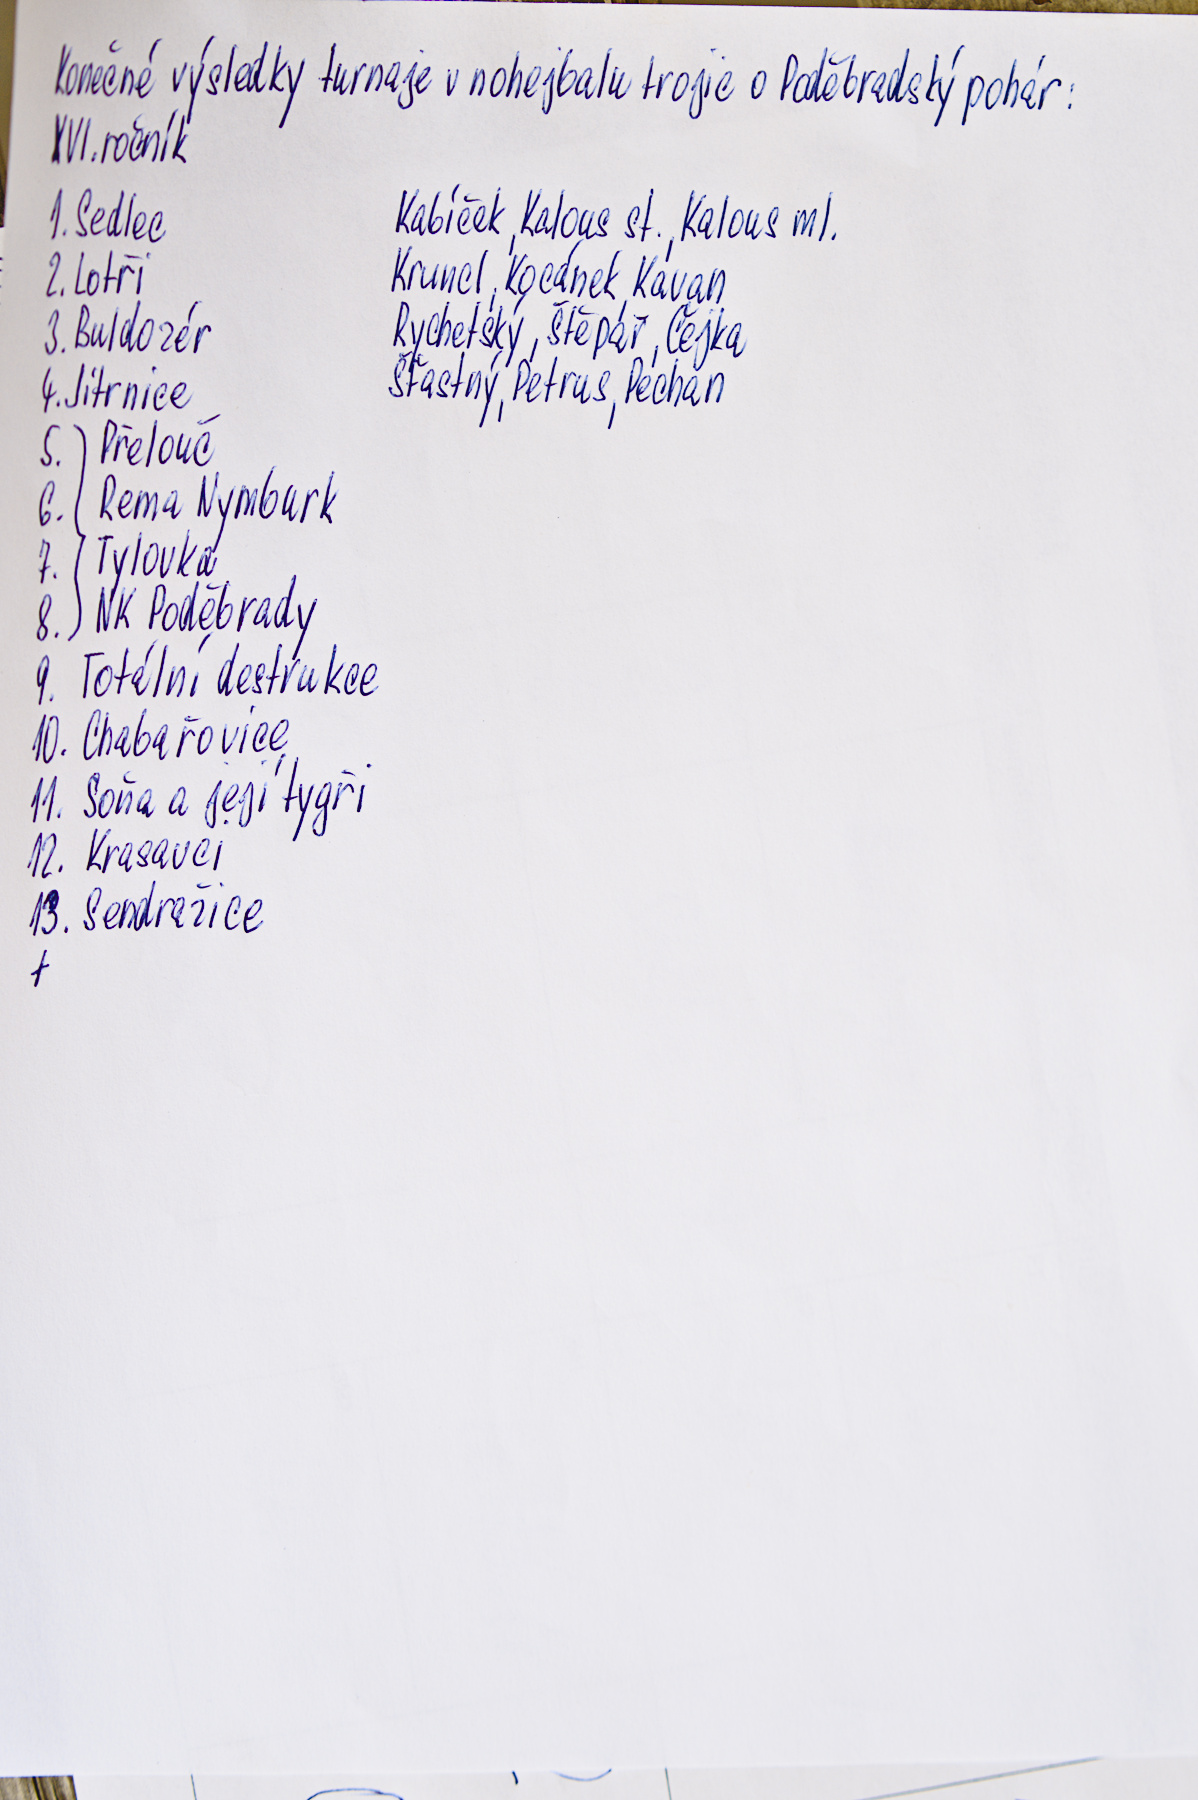 Konečné výsledky turnaje v nohejbalu trojic o Poděbradský pohár:
XVI. ročník
1. Sedlec Kabíček, Kalous st., Kalous ml.
2. Lotři Kruncl, Kocánek, Kavan
3. Buldozér Rychetský, Štěpář, Čejka
4. Jitrnice Šťastný, Petrus, Pechan
5. Přelouč
6. Rema Nymburk
7. Tylovka
8. NK Poděbrady
9. Totální destrukce
10. Chabařovice
11. Soňa a její tygři
12. Krasavci
13. Sendražice